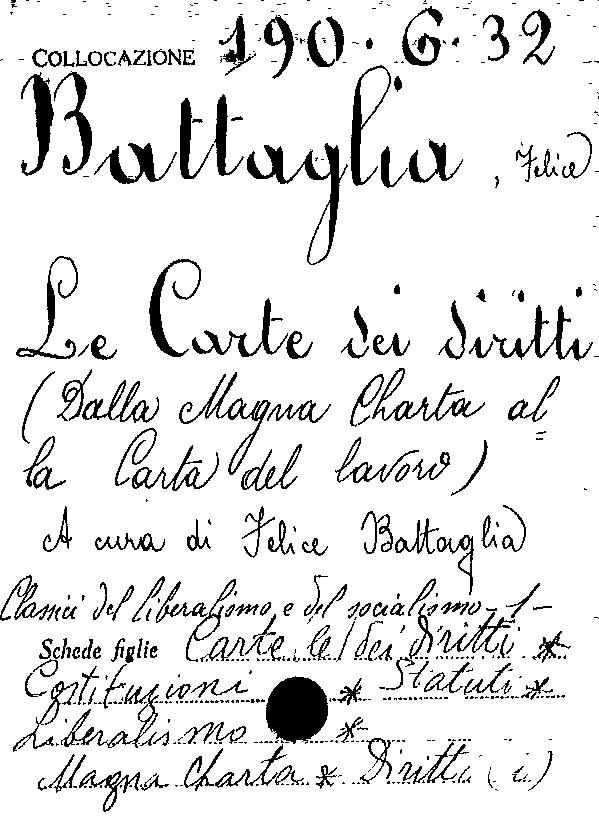 COLLOCAZIONE 190. G. 32
Battaglia, Felice
Le Carte dei diritti
(Dalla Magna Charta al=
la Carta del lavoro)
A cura di Felice Battaglia
Classici del liberalismo e del socialismo - 1 -
Schede figlie Carte (le) dei diritti *
Costituzioni * Statuti *
Liberalismo *
Magna Charta * Diritti (i)